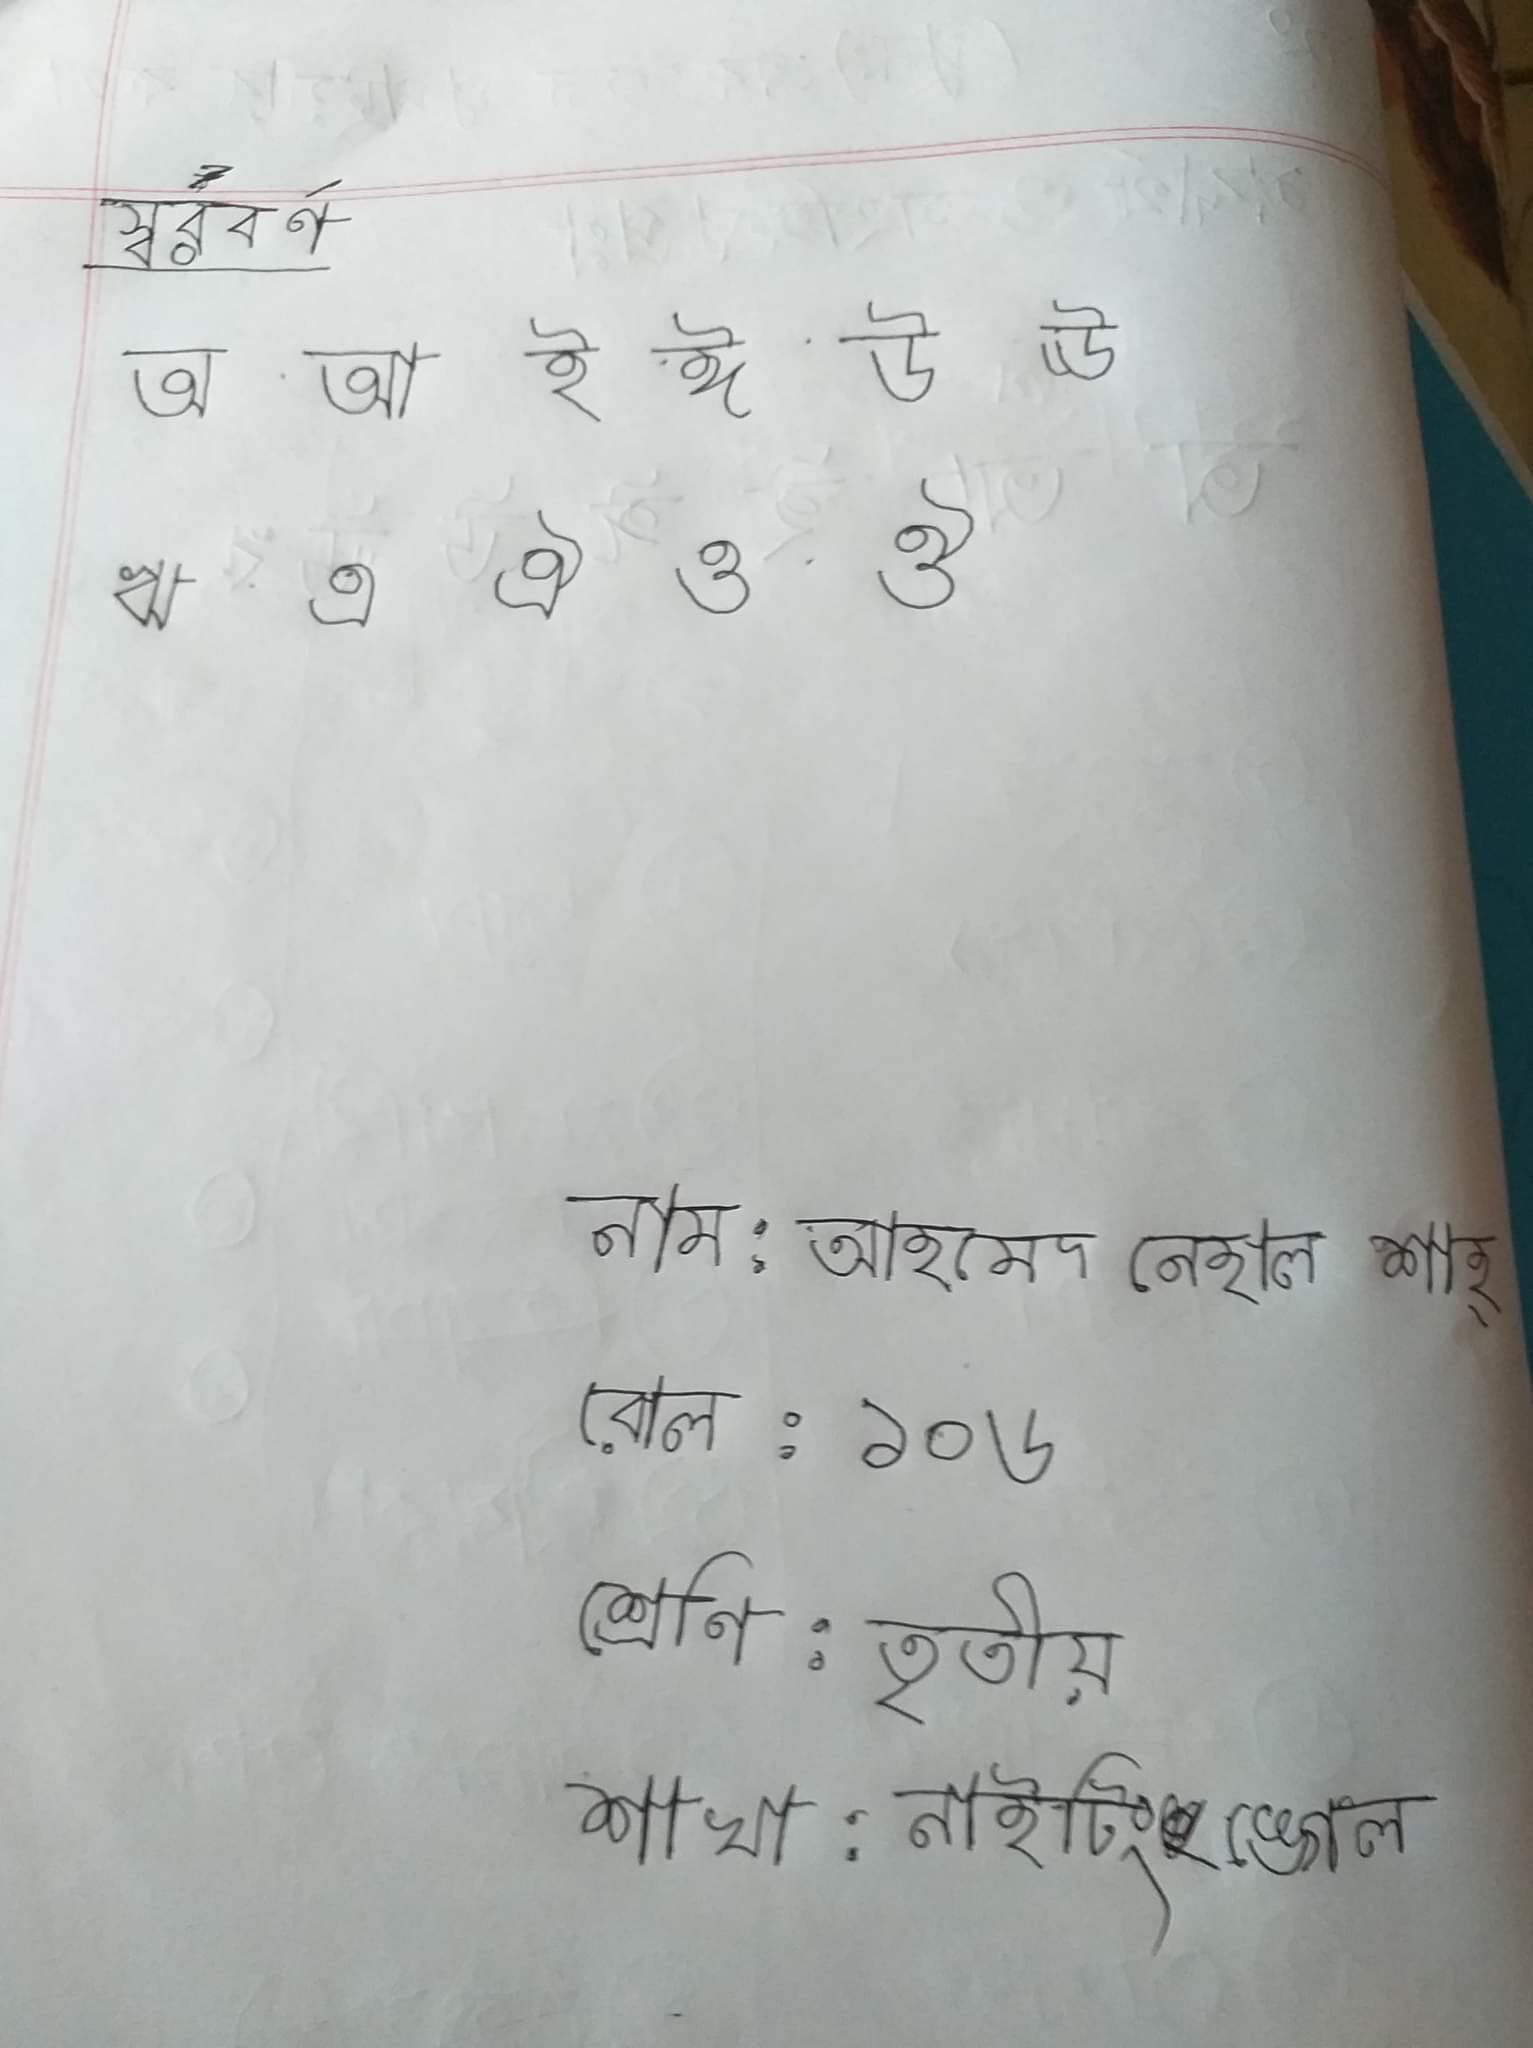 স্বরবর্ণ
অ আ ই ঈ উ ঊ
ঋ এ ঐ ও ঔ
নাম : আহমেদ নেহাল শাহ্
রোল : ১০৬
শ্রেণি : তৃতীয়
শাখা : নাইটিংজেল